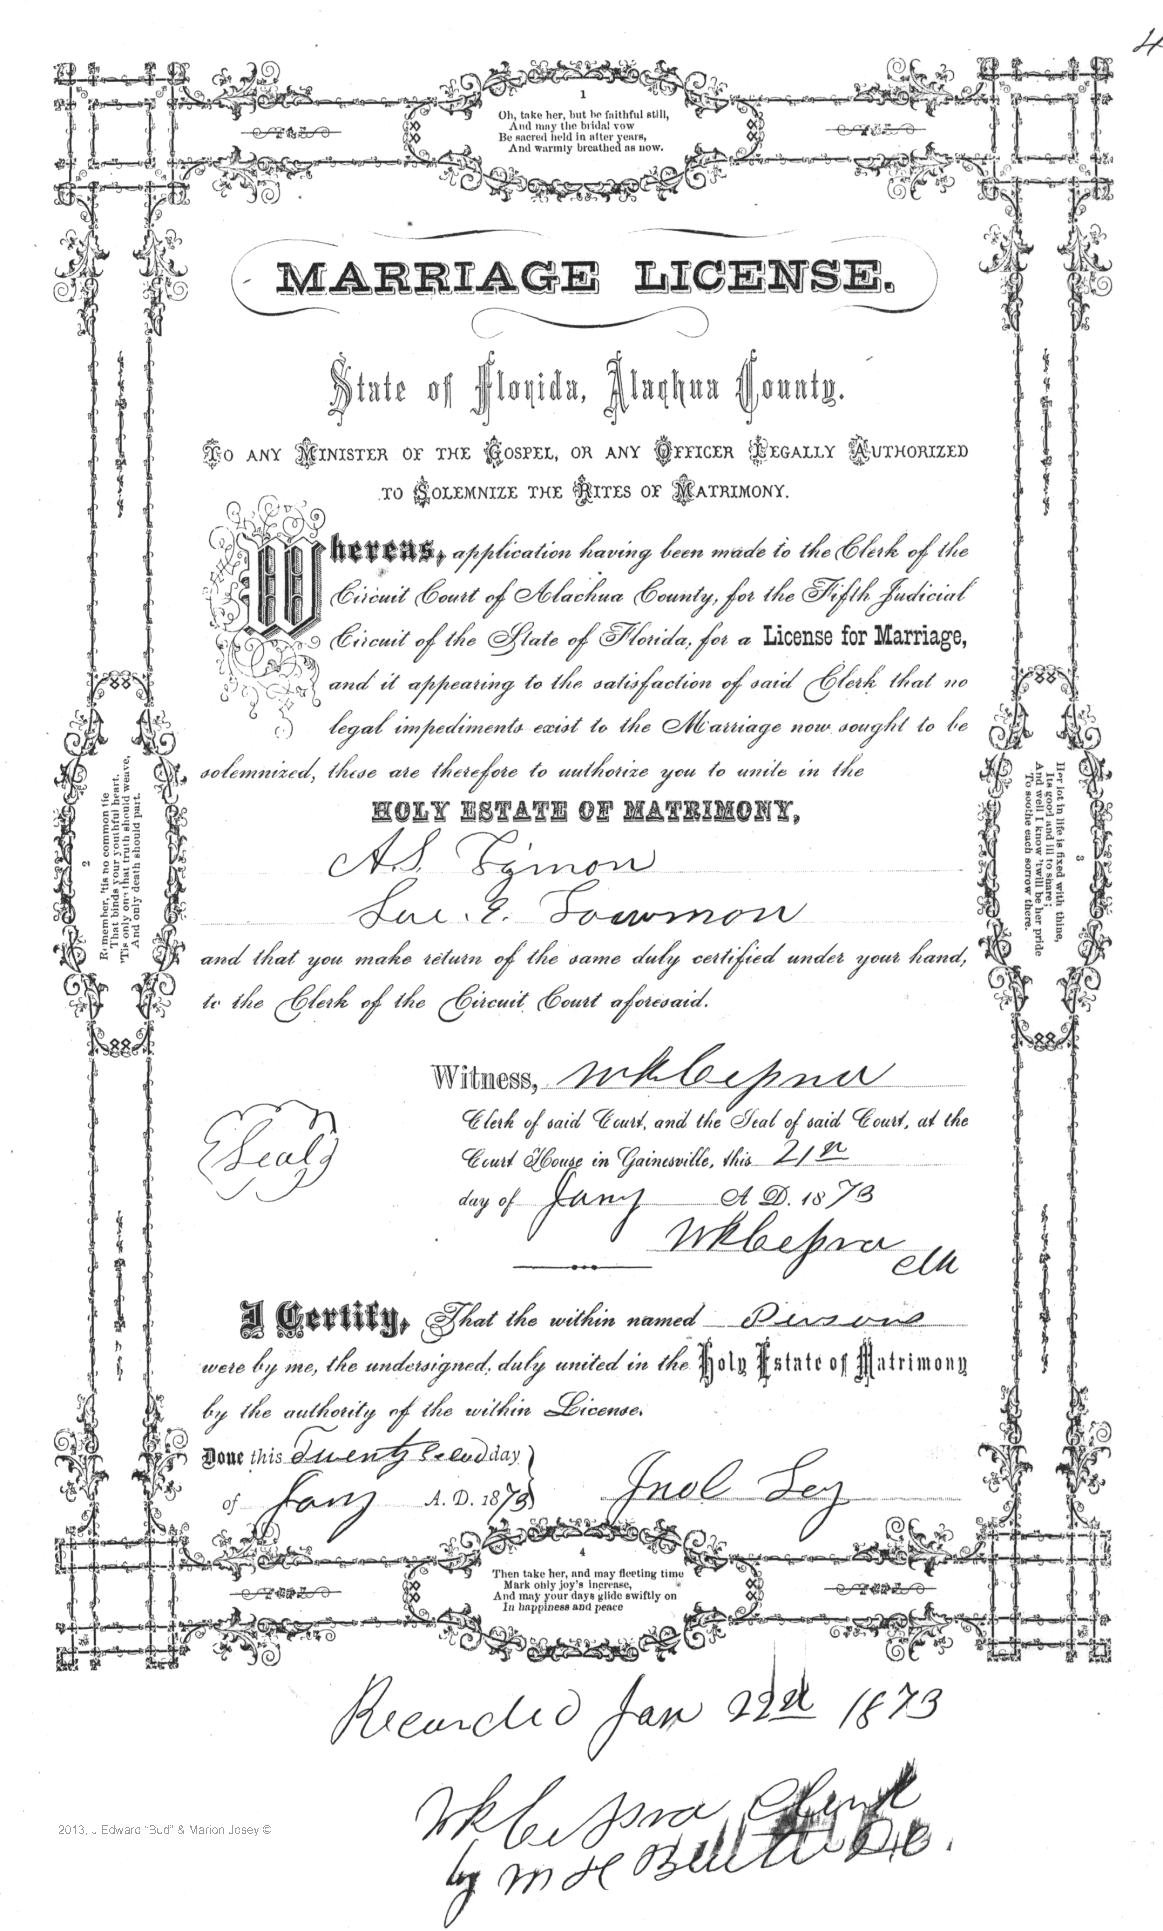 4
1
Oh, take her, but be faithful still,
And may the bridal vow
Be sacred held in after years,
And warmly breathed as now.
MARRIAGE LICENSE.
State of Florida, Alachua County.
TO ANY MINISTER OF THE GOSPEL, OR ANY OFFICER LEGALLY AUTHORIZED
TO SOLEMNIZE THE RITES OF MATRIMONY.
Whereas, application having been made to the Clerk of the
Circuit Court of Alachua County, for the Fifth Judicial
Circuit of the State of Florida, for a License for Marriage,
and it appearing to the satisfaction of said Clerk that no
legal impediments exist to the Marriage now sought to be
solemnized, these are therefore to authorize you to unite in the
HOLY ESTATE OF MATRIMONY,
A S
Sue. E.
and that you make return of the same duly certified under your hand,
to the Clerk of the Circuit Court aforesaid.
2
Remember, 'tis no common tie
That binds your youthful heart.
'Tis only one that truth should weave,
And only death should part.
3
Her lot in life is fixed with thine,
Its good and ill to share;
And well I know 'twill be her pride
To soothe each sorrow there.
Witness, W K Cessna
Clerk of said Court, and the Seal of said Court, at the
Court House in Gainesville, this 21st
day of Jany A D. 1873
W K Cessna
Clk
Seal
I Certify, That the within named Persons
were by me, the undersigned, duly united in the Holy Estate of Matrimony
by the authority of the within License.
Done this Twenty Second day
of Jany A. D. 1873
Jno C Ley
4
Then take her, and may fleeting time
Mark only joy's increase,
And may your days glide swiftly on
In happiness and peace
Recorded Jan 22nd 1873
W K Cessna Clerk
by M H
2013, J Edward "Bud" & Marion Josey ©